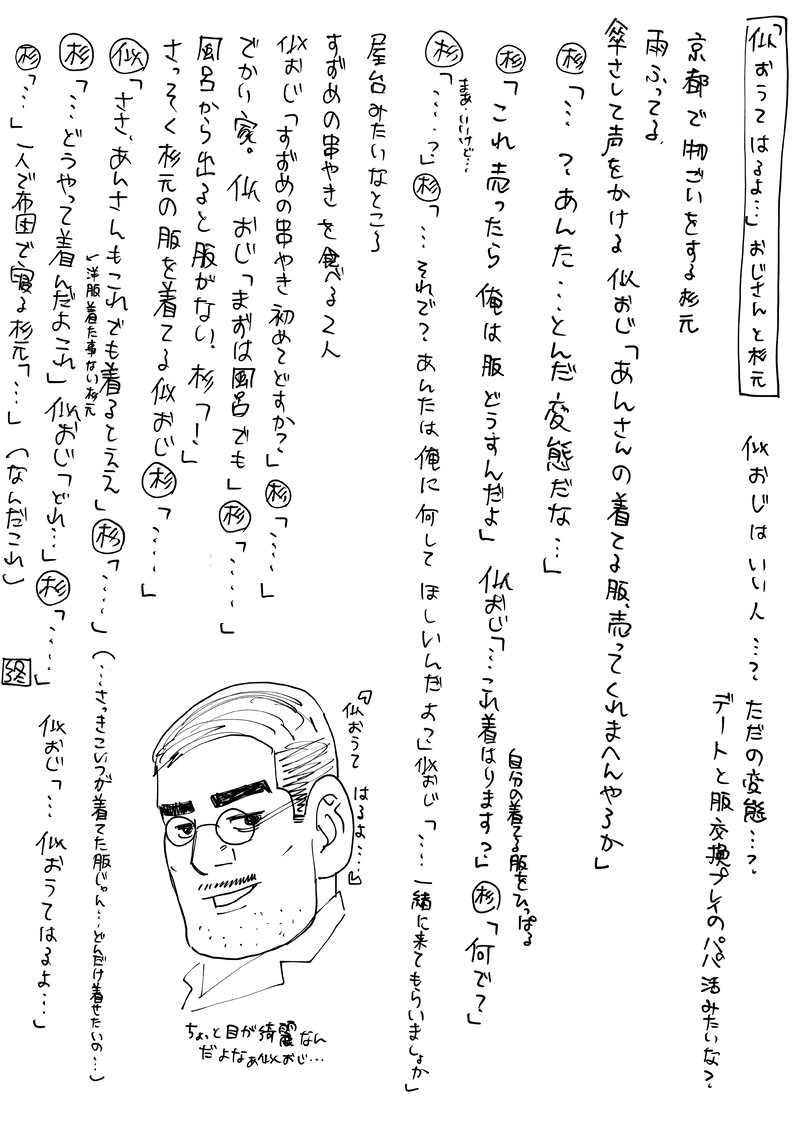 「似おうてはるよ…」おじさんと杉元
似おじはいい人…？ただの変態…？
デートと服交換プレイのパパ活みたいな？
京都で物ごいをする杉元
雨ふってる、
傘さして声をかける似おじ「あんさんの着てる服、売ってくれまへんやろか」
杉「…？あんた…とんだ変態だな…」
杉「これ売ったら俺は服どうすんだよ」似おじ「…これ着はります？」杉「何で？」
自分の着てる服をひっぱる
まあ、いいけど…
杉「…．？」杉「…それで？あんたは俺に何してほしいんだよ？」似おじ「…．一緒に来てもらいましょか」
屋台みたいなところ
すずめの串やきを食べる2人
似おじ「すずめの串やき初めてどすか？」杉「…．」
でかい家。似おじ「まずは風呂でも」杉「…．」
風呂から出ると服がない、杉「ー！」
さっそく杉元の服を着てる似おじ杉「…．」
似「ささ、あんさんもこれでも着るとええ」杉「…．」（…さっきこいつが着てた服じゃん…どんだけ着せたいの…）
↙洋服着た事ない杉元
杉「…どうやって着んだよこれ」似おじ「どれ…」杉「…．」似おじ「…似おうてはるよ…」
杉「…」一人で布団で寝る杉元「…」（なんだこれ）終
『似おうてはるよ…』
ちょっと目が綺麗なん
だよなぁ似おじ…